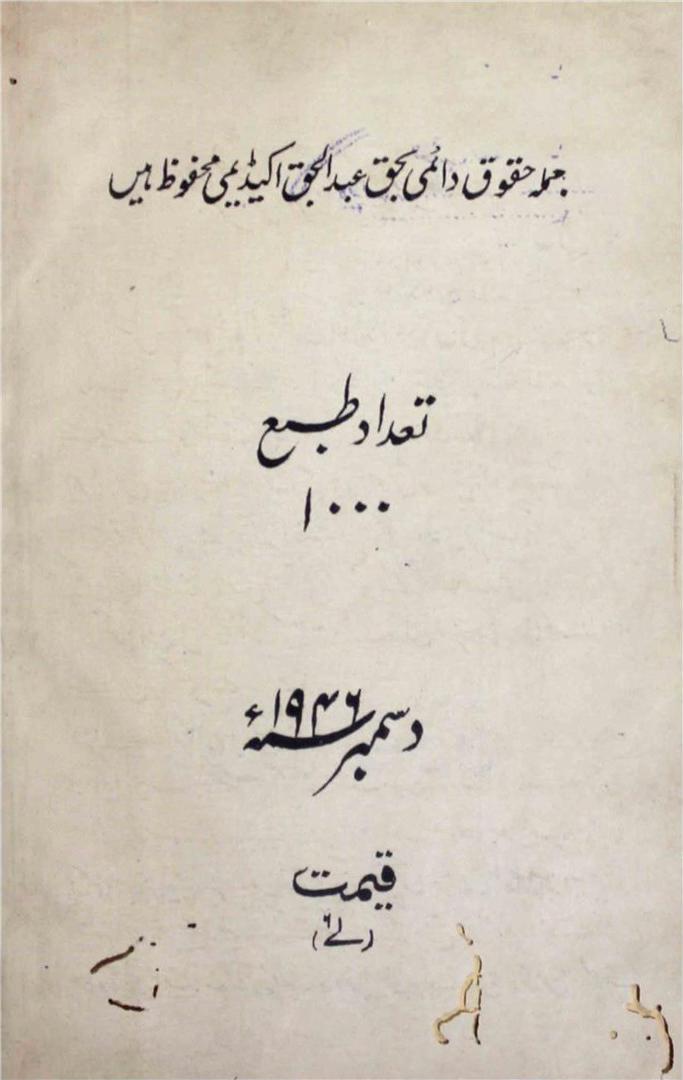 جملہ حقوق دائمی بحق عبدالحق اکیڈیمی محفوظ ہیں
تعداد طبع
۱۰۰۰
دسمبر سنہ ۱۹۴۶ء
قیمت